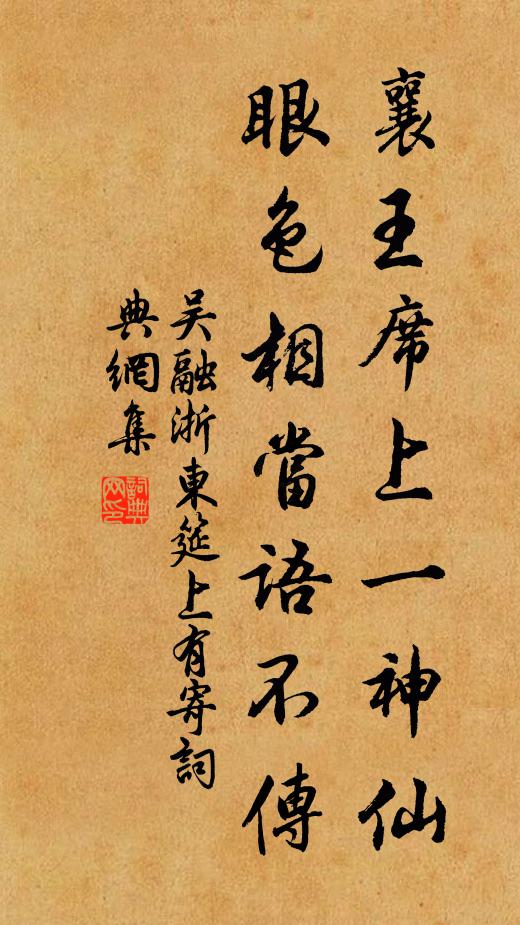 襄王席上一神仙
眼色相當語不傳
吴融浙東筵上有寄詞
典網集
詞典
网印